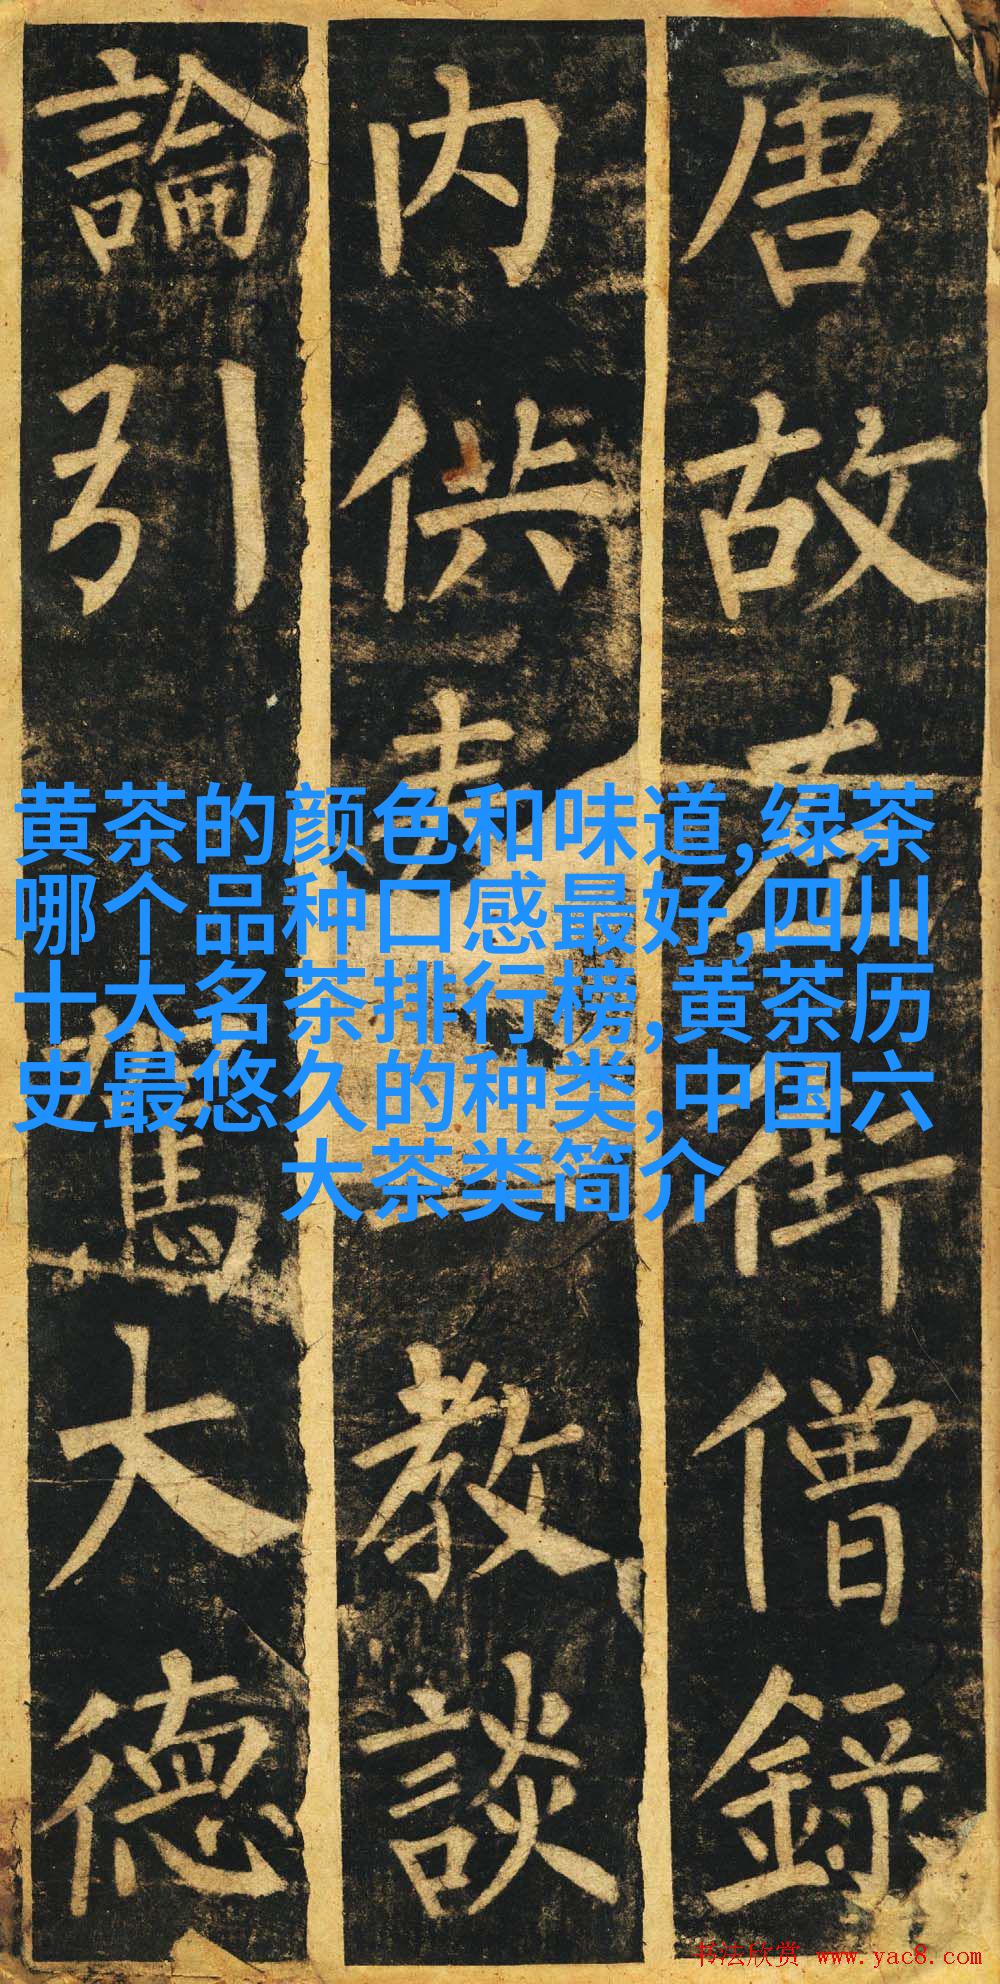 唐故左街僧錄
内供奉教談
論引駕大德
黄茶的颜色和味道,绿茶
哪个品种口感最好,四川
十大名茶排行榜,黄茶历
史最悠久的种类,中国六
大茶类简介
书法欣赏 www.yac8.com